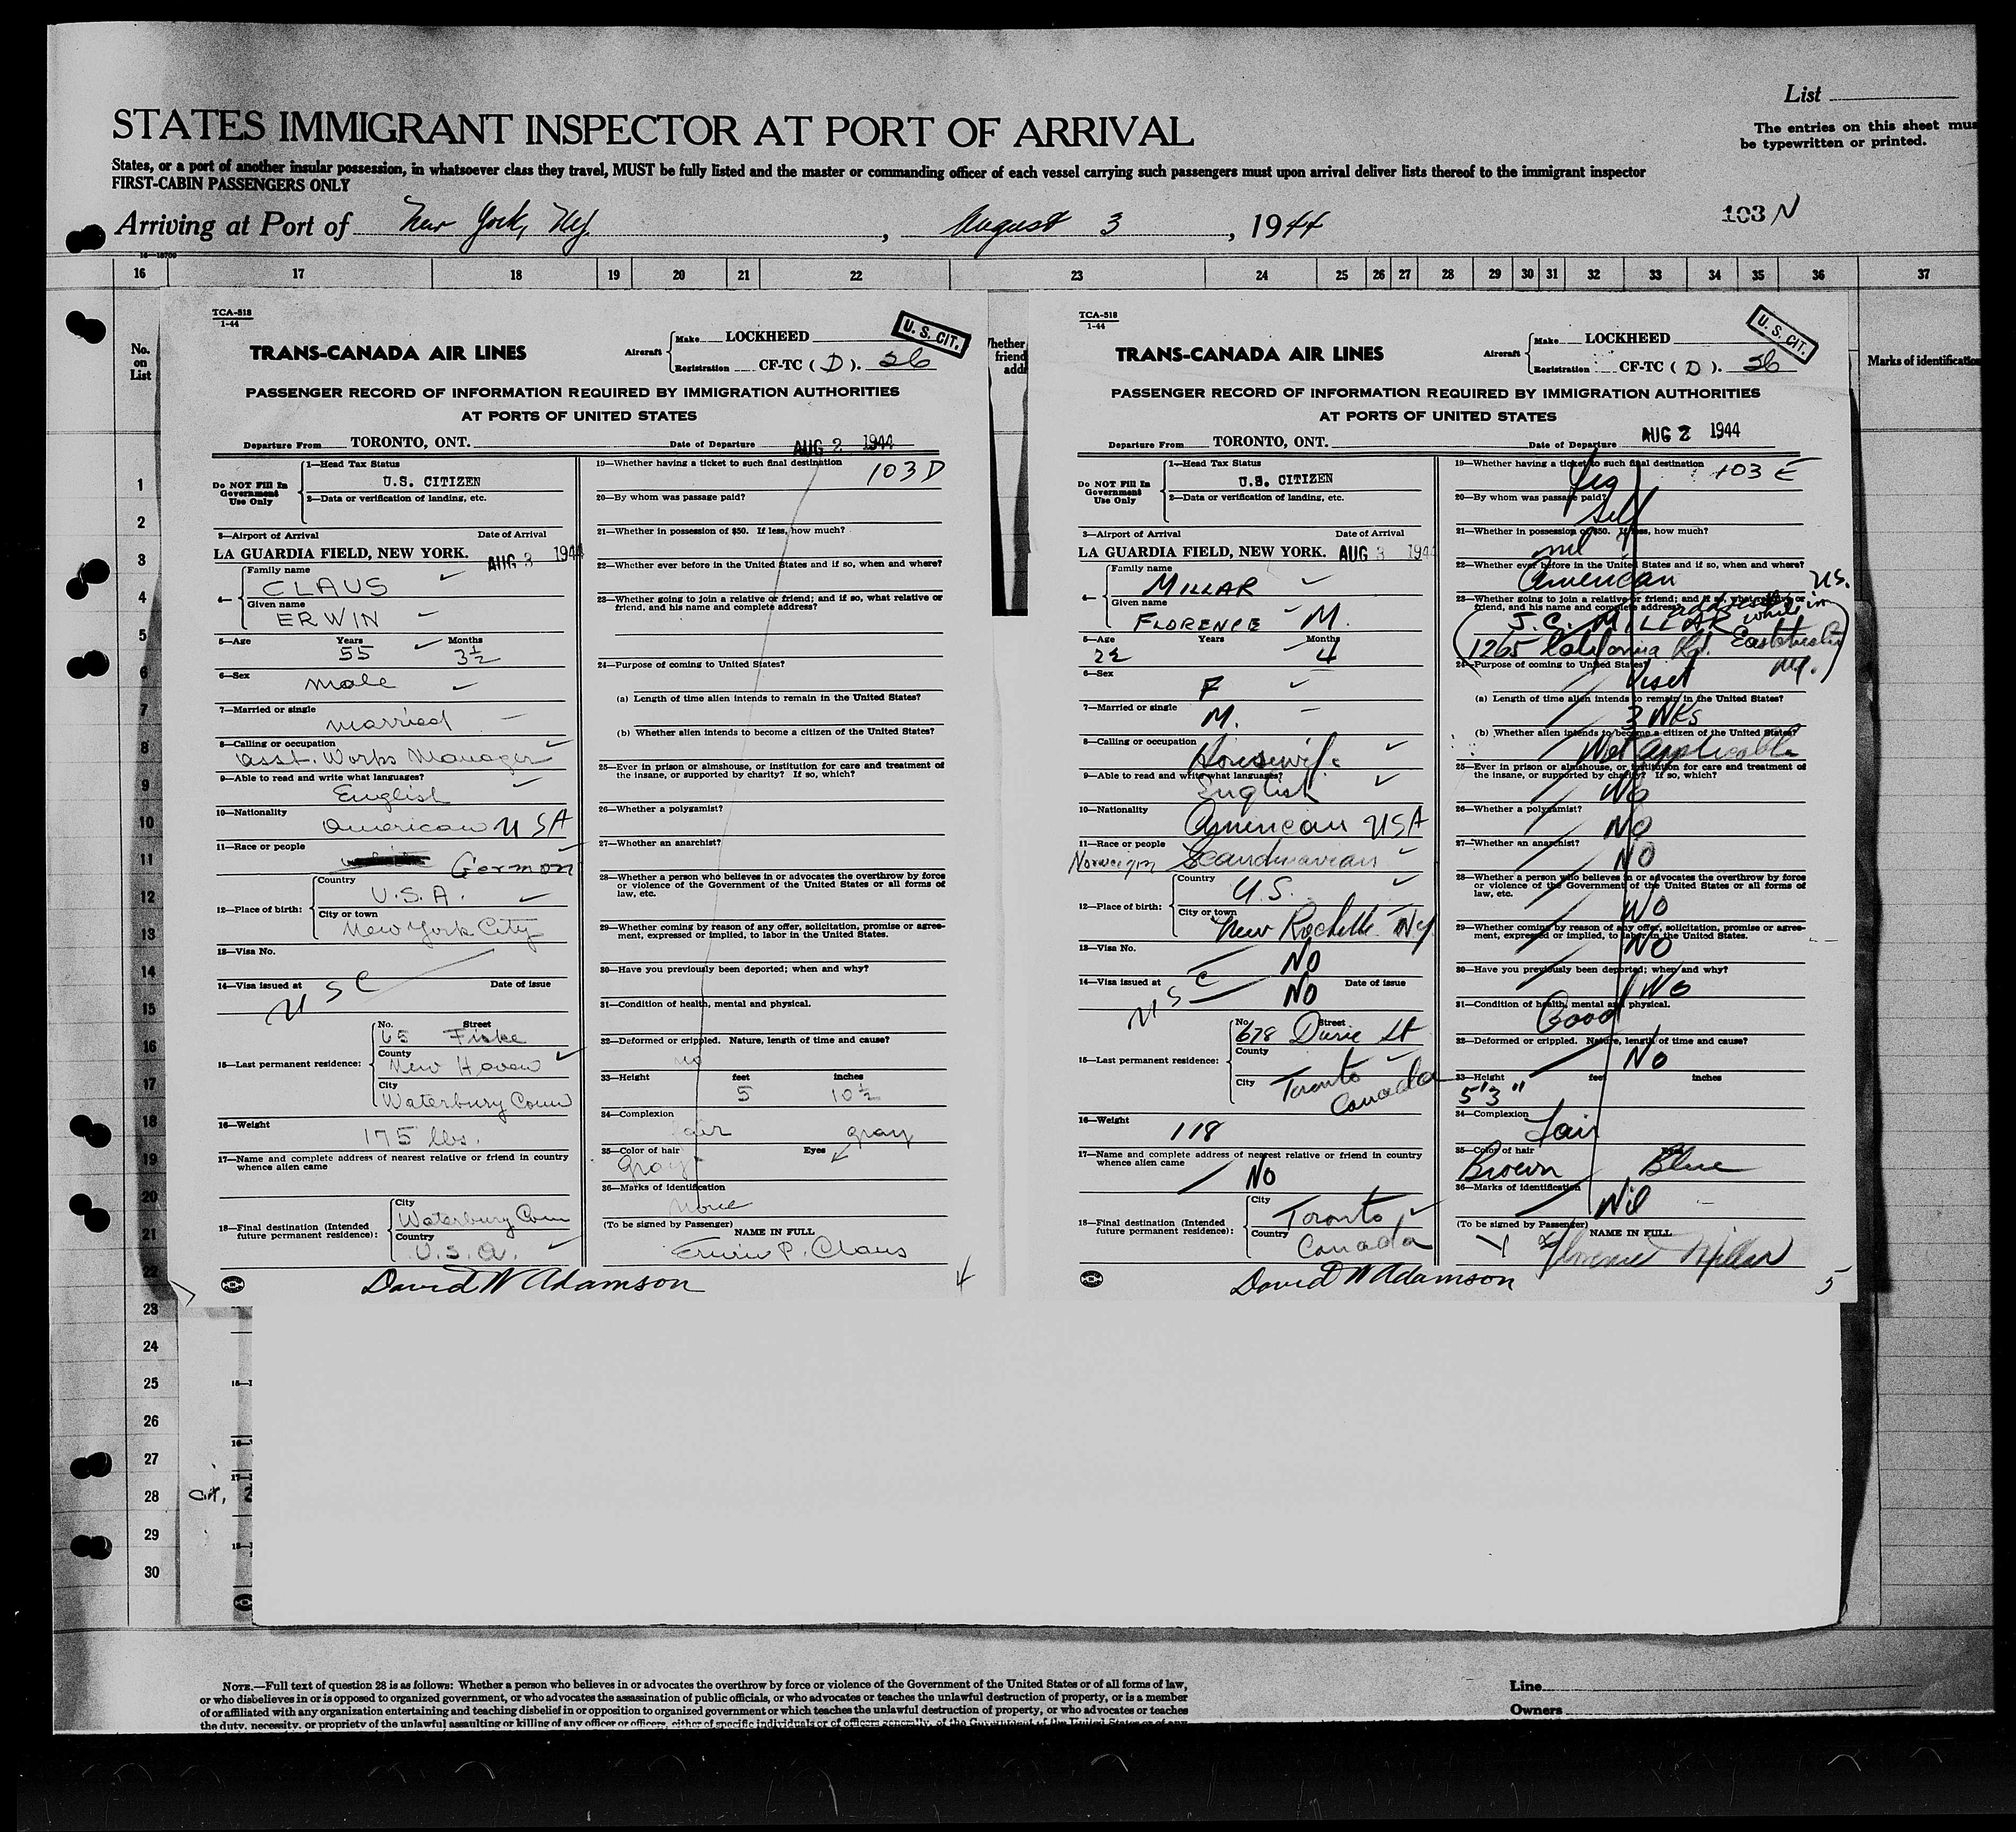 List
STATES IMMIGRANT INSPECTOR AT PORT OF ARRIVAL
The entries on this sheet mus
be typewritten or printed.
States, or a port of another insular possession, in whatsoever class they travel, MUST be fully listed and the master or commanding officer of each vessel carrying such passengers must upon arrival deliver lists thereof to the immigrant inspector
FIRST-CABIN PASSENGERS ONLY
103 N
Arriving at Port of New York, Ny. , August 3 , 1944
16—18709
16 17 18 19 20 21 22 23 24 25 26 27 28 29 30 31 32 33 34 35 36 37
No.
on
List
1
2
3
4
5
6
7
8
9
10
11
12
13
14
15
16
17
18
19
20
21
22
23
24
25
26
27
28
29
30
TCA-518
1-44
U. S. CIT.
TRANS-CANADA AIR LINES
Aircraft Make LOCKHEED
Registration CF-TC ( D ). 36
PASSENGER RECORD OF INFORMATION REQUIRED BY IMMIGRATION AUTHORITIES
AT PORTS OF UNITED STATES
Departure From TORONTO, ONT. Date of Departure AUG 2 1944
Do NOT Fill In
Government
Use Only
1—Head Tax Status
U.S. CITIZEN
2—Data or verification of landing, etc.
3—Airport of Arrival Date of Arrival
LA GUARDIA FIELD, NEW YORK. AUG 3 1944
4— Family name
CLAUS
Given name
ERWIN
5—Age Years Months
55 3½
6—Sex
male
7—Married or single
married
8—Calling or occupation
asst. Works Manager
9—Able to read and write what languages?
English
10—Nationality
American USA
11—Race or people
German
12—Place of birth: Country
U.S.A.
City or town
New York City
13—Visa No.
14—Visa issued at Date of issue
U S C
15—Last permanent residence:
No. Street
65 Fiske
County
New Haven
City
Waterbury Conn
16—Weight
175 lbs.
17—Name and complete address of nearest relative or friend in country
whence alien came
18—Final destination (Intended
future permanent residence):
City
Waterbury Conn
Country
U.S.A.
David W Adamson
19—Whether having a ticket to such final destination
103 D
20—By whom was passage paid?
21—Whether in possession of $50. If less, how much?
22—Whether ever before in the United States and if so, when and where?
23—Whether going to join a relative or friend; and if so, what relative or
friend, and his name and complete address?
24—Purpose of coming to United States?
(a) Length of time alien intends to remain in the United States?
(b) Whether alien intends to become a citizen of the United States?
25—Ever in prison or almshouse, or institution for care and treatment of
the insane, or supported by charity? If so, which?
26—Whether a polygamist?
27—Whether an anarchist?
28—Whether a person who believes in or advocates the overthrow by force
or violence of the Government of the United States or all forms of
law, etc.
29—Whether coming by reason of any offer, solicitation, promise or agree-
ment, expressed or implied, to labor in the United States.
30—Have you previously been deported; when and why?
31—Condition of health, mental and physical.
32—Deformed or crippled. Nature, length of time and cause?
no
33—Height feet inches
5 10½
34—Complexion
fair gray
35—Color of hair Eyes
gray
36—Marks of identification
none
(To be signed by Passenger) NAME IN FULL
Erwin P. Claus
4
Whether
friend
addr
TCA-518
1-44
U. S. CIT.
TRANS-CANADA AIR LINES
Aircraft Make LOCKHEED
Registration CF-TC ( D ). 36
PASSENGER RECORD OF INFORMATION REQUIRED BY IMMIGRATION AUTHORITIES
AT PORTS OF UNITED STATES
Departure From TORONTO, ONT. Date of Departure AUG 2 1944
Do NOT Fill In
Government
Use Only
1—Head Tax Status
U.S. CITIZEN
2—Data or verification of landing, etc.
3—Airport of Arrival Date of Arrival
LA GUARDIA FIELD, NEW YORK. AUG 3 194
4— Family name
MILLAR
Given name
FLORENCE M.
5—Age Years Months
22 4
6—Sex
F
7—Married or single
M.
8—Calling or occupation
Housewife
9—Able to read and write what languages?
English
10—Nationality
American USA
11—Race or people
Norweigm Scandinavian
12—Place of birth: Country
U.S.
City or town
New Rochelle Ny.
13—Visa No.
NO
14—Visa issued at Date of issue
U S C NO
15—Last permanent residence:
No. Street
678 Durie St
County
City
Toronto
Canada
16—Weight
118
17—Name and complete address of nearest relative or friend in country
whence alien came
No
18—Final destination (Intended
future permanent residence):
City
Toronto,
Country
Canada
David W Adamson
19—Whether having a ticket to such final destination
Yes 103 E
20—By whom was passage paid?
Self
21—Whether in possession of $50. If less, how much?
nil
22—Whether ever before in the United States and if so, when and where?
American
23—Whether going to join a relative or friend; and if so, what relative or
friend, and his name and complete address?
address while in U.S.
J.C. MILLAR
1265 California Rd. Eastchester
Ny.
24—Purpose of coming to United States?
Visit
(a) Length of time alien intends to remain in the United States?
3 WKs
(b) Whether alien intends to become a citizen of the United States?
Not applicable
25—Ever in prison or almshouse, or institution for care and treatment of
the insane, or supported by charity? If so, which?
No
26—Whether a polygamist?
NO
27—Whether an anarchist?
NO
28—Whether a person who believes in or advocates the overthrow by force
or violence of the Government of the United States or all forms of
law, etc.
NO
29—Whether coming by reason of any offer, solicitation, promise or agree-
ment, expressed or implied, to labor in the United States.
NO
30—Have you previously been deported; when and why?
No
31—Condition of health, mental and physical.
Good
32—Deformed or crippled. Nature, length of time and cause?
No
33—Height feet inches
5'3"
34—Complexion
Fair
35—Color of hair Eyes
Brown Blue
36—Marks of identification
Nil
(To be signed by Passenger) NAME IN FULL
Florence Millar
5
Marks of identification
NOTE.—Full text of question 28 is as follows: Whether a person who believes in or advocates the overthrow by force or violence of the Government of the United States or of all forms of law,
or who disbelieves in or is opposed to organized government, or who advocates the assassination of public officials, or who advocates or teaches the unlawful destruction of property, or is a member
of or affiliated with any organization entertaining and teaching disbelief in or opposition to organized government or which teaches the unlawful destruction of property, or who advocates or teaches
the duty, necessity, or propriety of the unlawful assaulting or killing of any officer or officers, either of specific individuals or of officers generally, of the Government of the United States or of any
Line
Owners